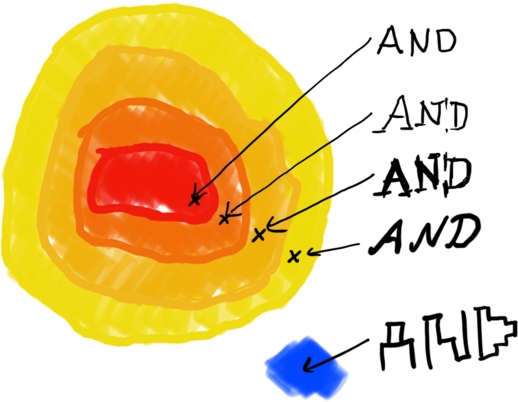 AND
AND
AND
AND
AND